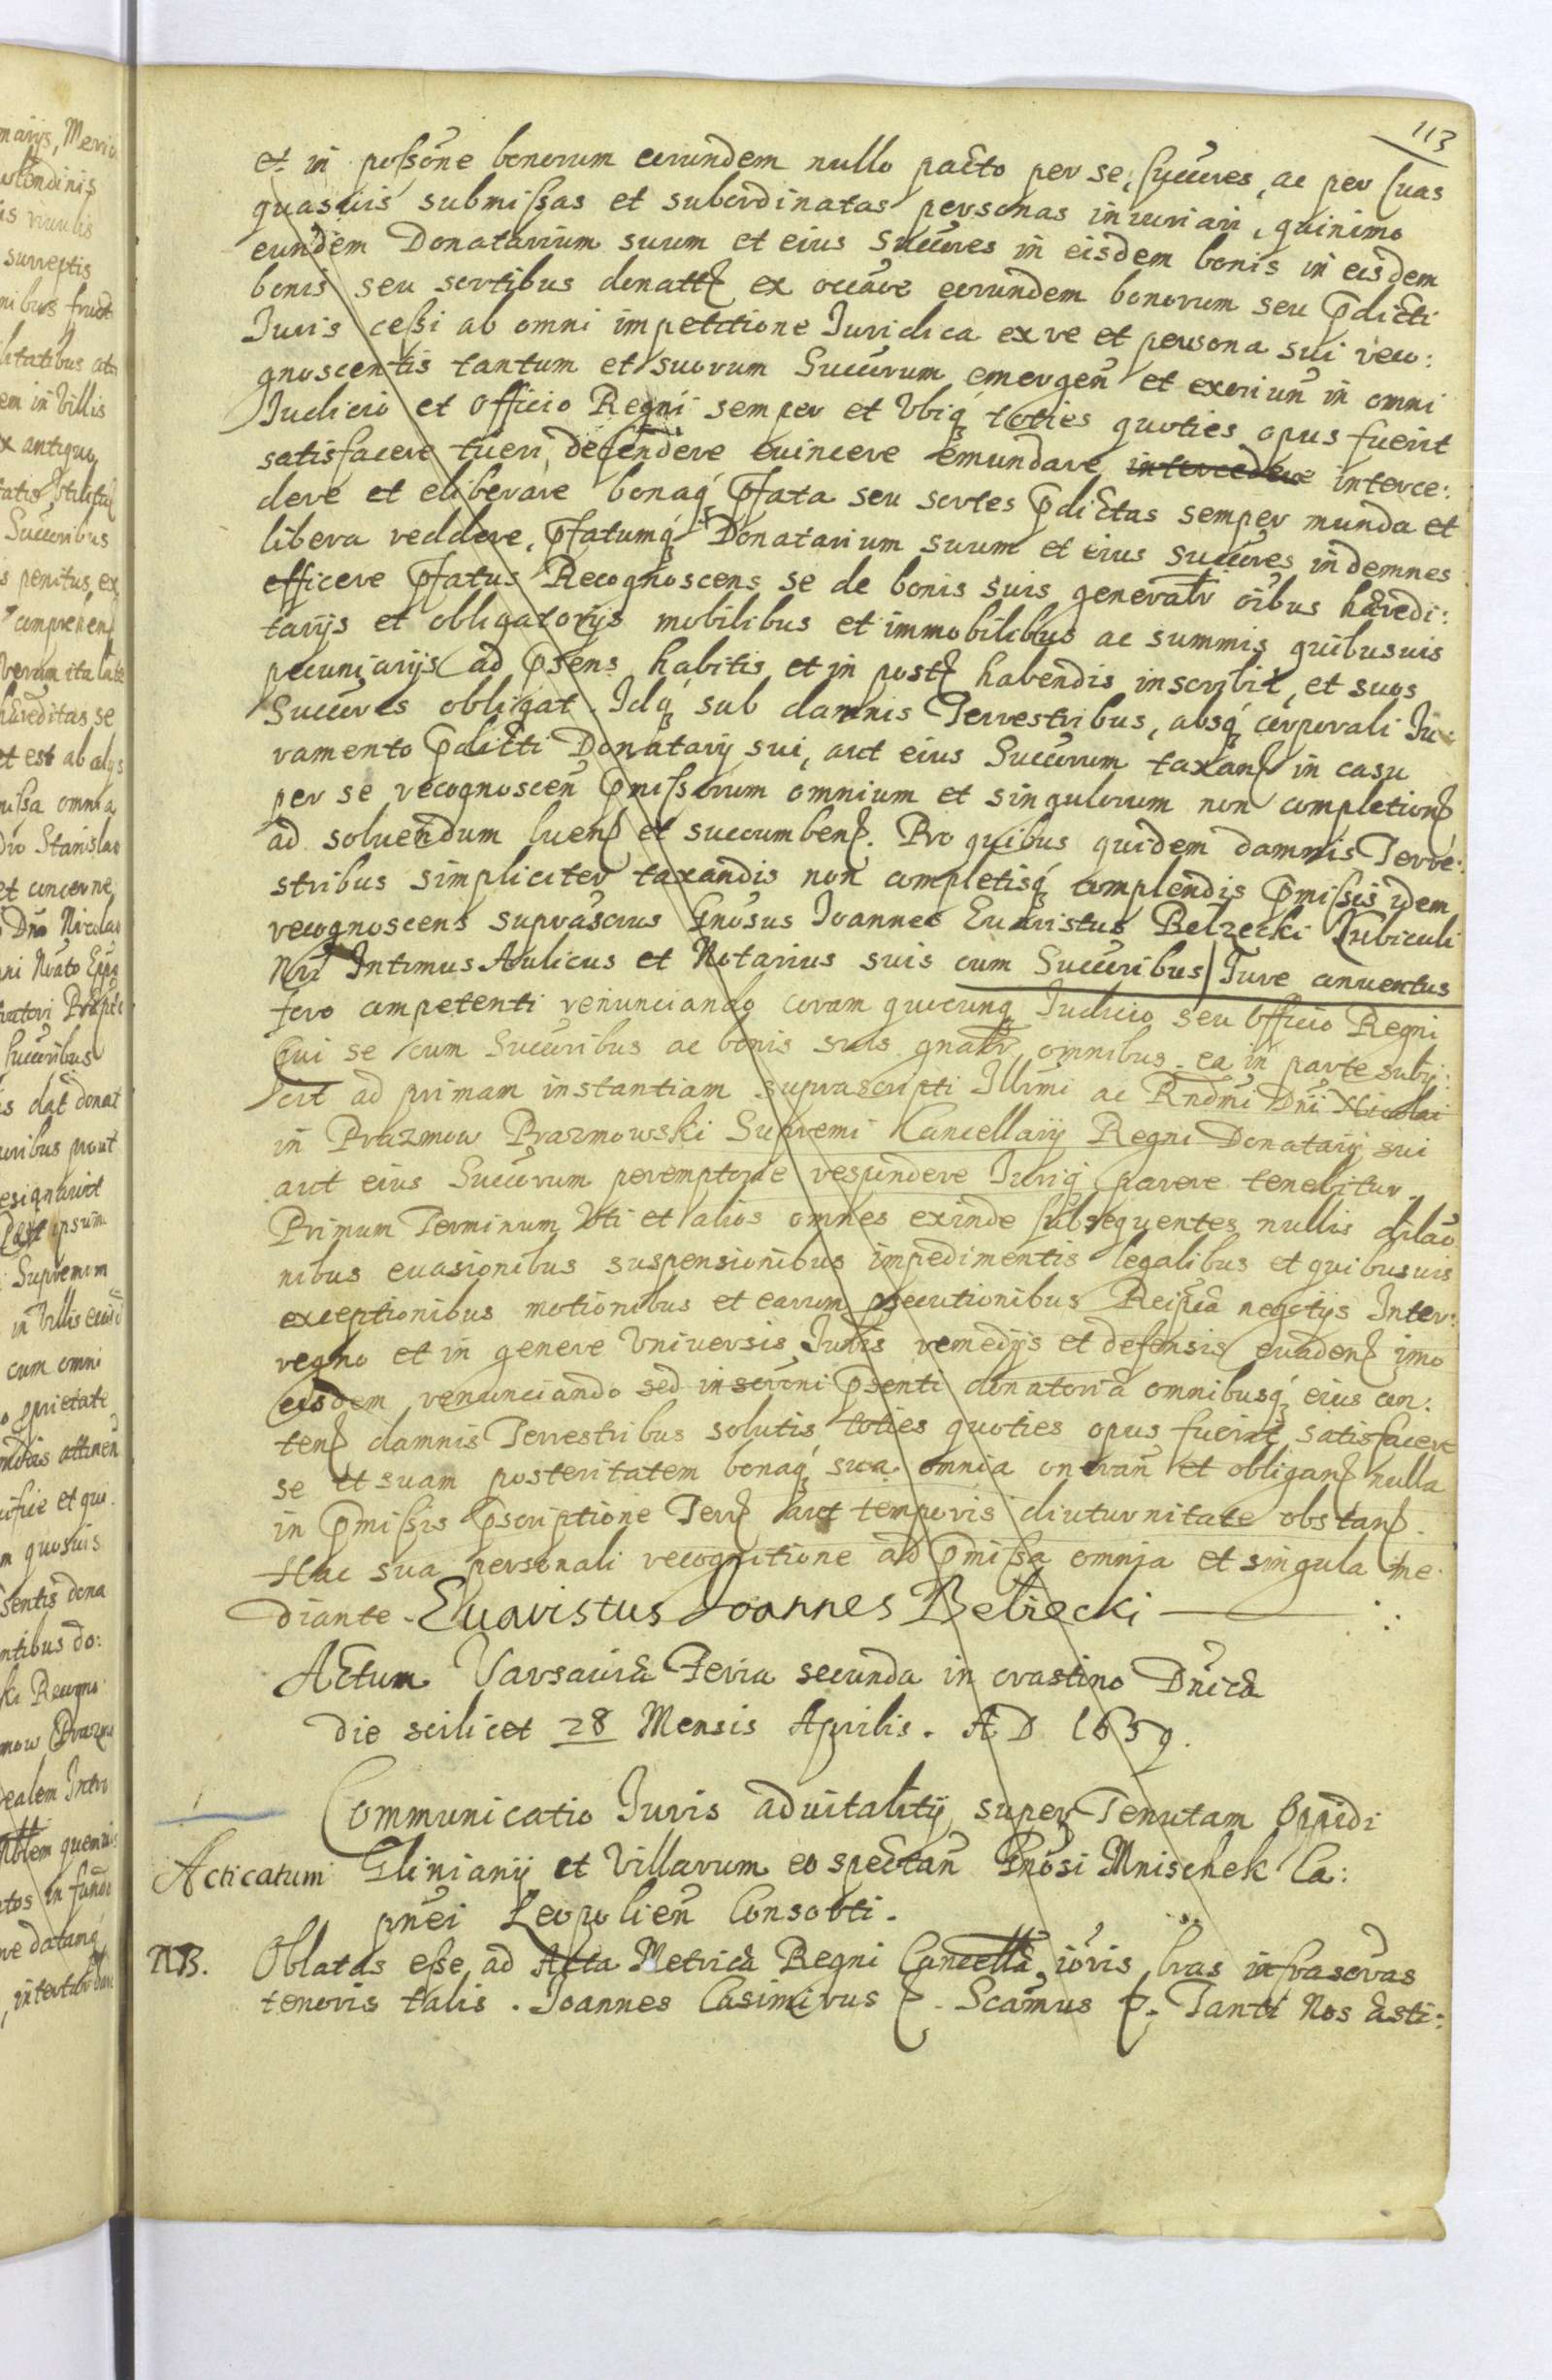 113
et in possōne bonorum eorundem nullo pacto per se, succēres, ac per suas
quasuis submissas et subordinatas personas iniuriari, quinimo
eundem Donatarium suum et eius Succēres in eisdem bonis in eisdem
bonis seu sortibus donattȝ ex occāōe eorundem bonorum seu p̄dicti
Iuris cessi ab omni impetitione Iuridica ex re et persona sui reco:
gnoscentis tantum et suorum Succōrum emergen̄ et exoriun̄ in omni
Iudicio et officio Regni semper et Vbiq́ȝ toties quoties opus fuerit
satisfacere tueri, defendere euincere emundare intercedere interce:
dere et eliberare bonaq́ȝ p̄fata seu sortes p̄dictas semper munda et
libera reddere, p̄fatumq́ȝ Donatarium suum et eius succōres indemnes
efficere p̄fatus Recognoscens se de bonis suis generalr̄ oībus hæredi:
tarijs et obligatorijs mobilibus et immobilibus ac summis quibusuis
pecuniarijs ad p̄sens habitis et in postȝ habendis inscribit, et suos
Succōres obligat. Idq́ȝ sub damnis Terrestribus, absq́ȝ corporali Iu:
ramento p̄dicti Donatarij sui, aut eius Succōrum taxanȝ in casu
per se recognoscen̄ p̄missorum omnium et singulorum non completionȝ
ad soluendum luenȝ et succumbenȝ. Pro quibus quidem damnis Terre:
stribus simpliciter taxandis non completisq́ȝ complendis p̄missis idem
recognoscens suprascrus Gnosus Ioannes Euaristus Belzecki Cubiculi
Nri Intimus Aulicus et Notarius suis cum Succōribus Iure conuentus
foro competenti renunciando coram quocunq́ȝ Iudicio seu Officio Regni
Qui se cum Succōribus ac bonis suis gnalr̄ omnibus ea in parte subij:
cit ad primam instantiam suprascripti Illrmi ac Rndmi Dni Nicolai
in Prazmow Prazmowski Supremi Cancellarij Regni Donatarij sui
aut eius Succōrum peremptorie respondere Iuriq́ȝ parere tenebitur.
Primum Terminum Vti et alios omnes exinde subsequentes nullis dilaō
nibus euasionibus suspensionibus impedimentis legalibus et quibusuis
exceptionibus motionibus et earum p̄secutionibus Reipcæ negotijs Inter:
regno et in genere Vniuersis Iuris remedijs et defensis euadenȝ imo
eisdem renunciando sed inscrōni p̄senti donatoriæ omnibusq́ȝ eius con:
tenȝ damnis Terrestribus solutis toties quoties opus fuerit satisfacere
se et suam posteritatem bonaq́ȝ sua omnia oneran̄ et obliganȝ nulla
in p̄missis p̄scriptione Terrȝ aut temporis diuturnitate obstanȝ.
Hac sua personali recognitione ad p̄missa omnia et singula me:
diante. Euaristus Joannes Belzecki
Actum Varsauiæ Feria secunda in crastino Dnicæ
die scilicet 28 Mensis Aprilis. A D 1659.
Communicatio Iuris aduitalitij super Tenutam Oppidi
Acticatum Gliniany et Villarum eo spectan̄ Gnosi Mnischek Ca:
pnei Leopolien̄ Consorti.
NB. Oblatas esse ad Acta Metricæ Regni Cancellæ ioris lras infrascras
tenoris talis. Ioannes Casimirus ȝ. Scāmus ȝ. Tanti Nos æsti: